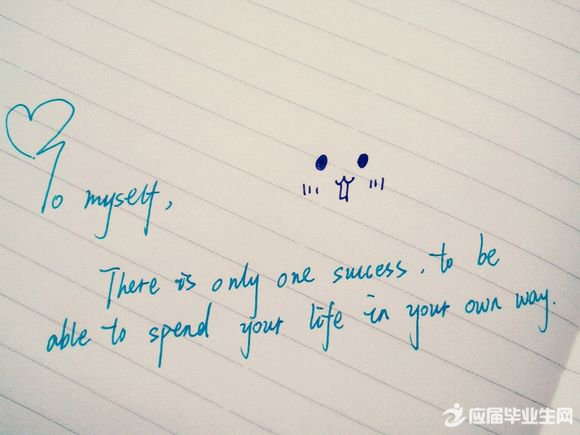 To myself,
There is only one success. to be
able to spend your life in your own way.
应届毕业生网